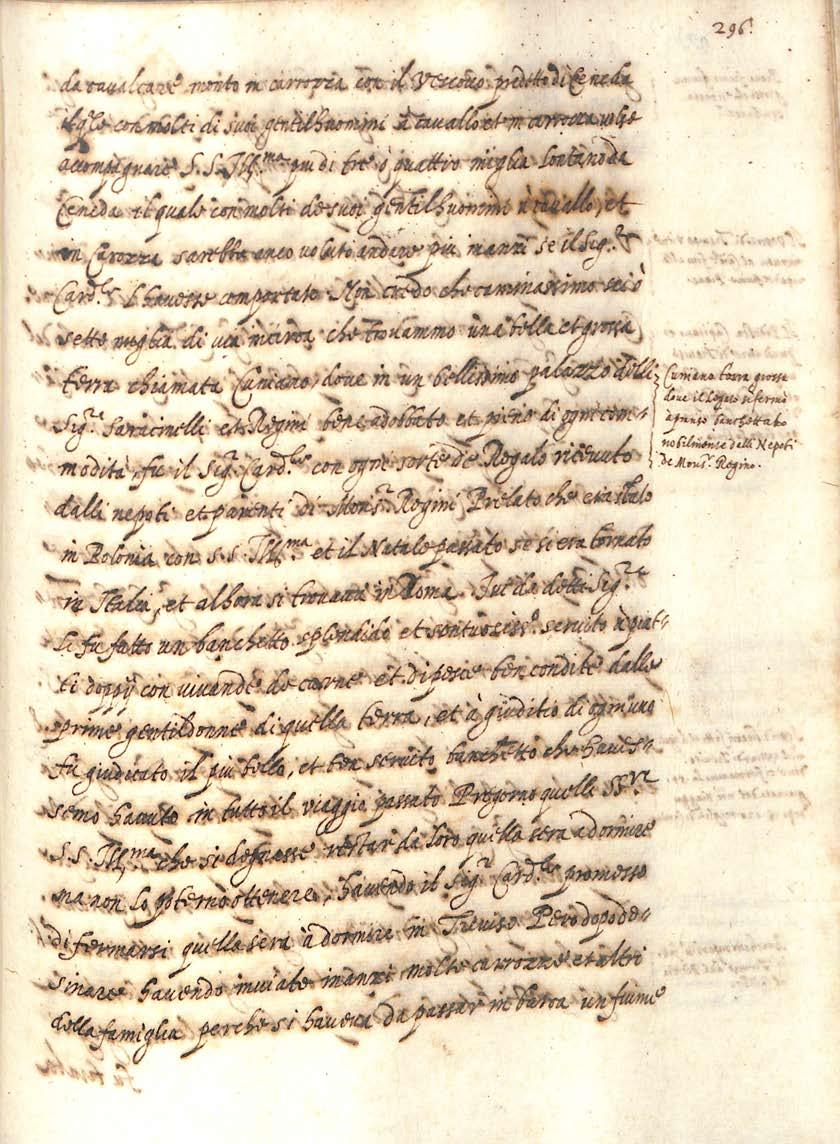 296.
da cavalcare montò in carrozza con il Vescovo predetto di Ceneda
il q.le con molti di suoi gentilhuomini à cavallo et in carrozza volse
accompagnare S. S. Ill.ma piu di tre ò quattro miglia lontano da
Ceneda il quale con molti de suoi gentilhuomini à cavallo, et
in Carozza sarebbe anco voluto andare più inanzi se il Sig.r
Card.le l'havesse comportato. Non credo che caminassimo sei ò
sette miglia di via incirca che trovammo una bella et grossa
terra chiamata Cuniano, dove in un bellissimo palazzo delli
Sig.ri Saracinelli et Regini bene adobbato et pieno di ogni com-
modità, fu il Sig.r Card.le con ogni sorte de Regalo ricevuto
dalli nepoti et parenti di Mons.r Regini Prelato che era stato
in Polonia con S. S. Ill.ma et il Natale passato se si era tornato
in Italia, et alhora si trovava in Roma. Fu da detti Sig.ri
li fu fatto un banchetto splendido et sontuosiss.o servito à piat-
ti doppij con vivande de carne et di pesce ben condite dalle
prime gentildonne di quella terra, et à giuditio di ogni uno
fù giudicato il più bello, et ben servito banchetto che haves-
semo havuto in tutto il viaggio passato. Pregorno quelli SS.ri
S. S. Ill.ma che si degnasse restar da loro quella sera a dormire
ma non lo poterno ottenere, havendo il Sig.r Card.le promesso
di fermarsi quella sera à dormire in Treviso. Però dopo de-
sinare havendo inviate inanzi molte carrozze et altri
della famiglia perche si haveva da passar in barca un fiume
Cuniano terra grossa
dove il Legato si fermò
à pranzo banchettato
nobilmente dalli Nepoti
de Mons.r Regino.